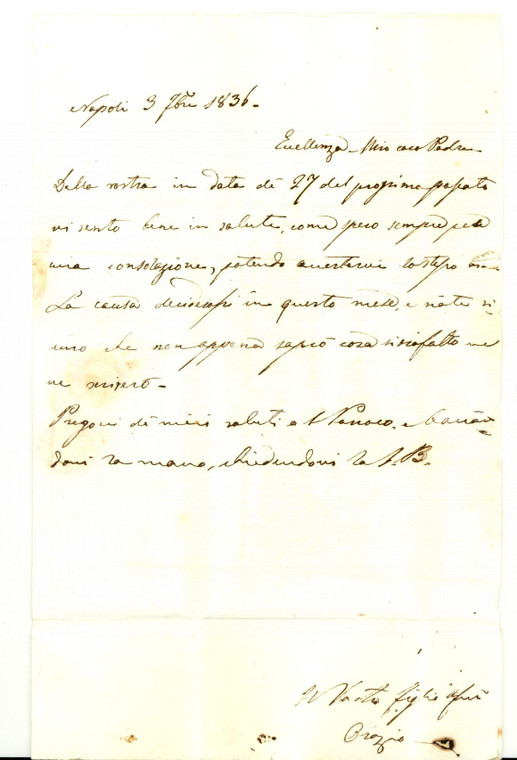 Napoli 3 7bre 1836.
Eccellenza Mio caro Padre
Della vostra in data de 27 del prossimo passato
vi sento bene in salute, come spero sempre per
mia consolazione, potendo accertarvi lo stesso
La causa decidesi in questo mese, e state si=
curo che non appena saprò cosa si sia fatto ve
ne
Pregovi di miei saluti al Parroco, e bacian=
dovi la mano, chiedendovi la S. B.
Il Vostro figlio
Orazio